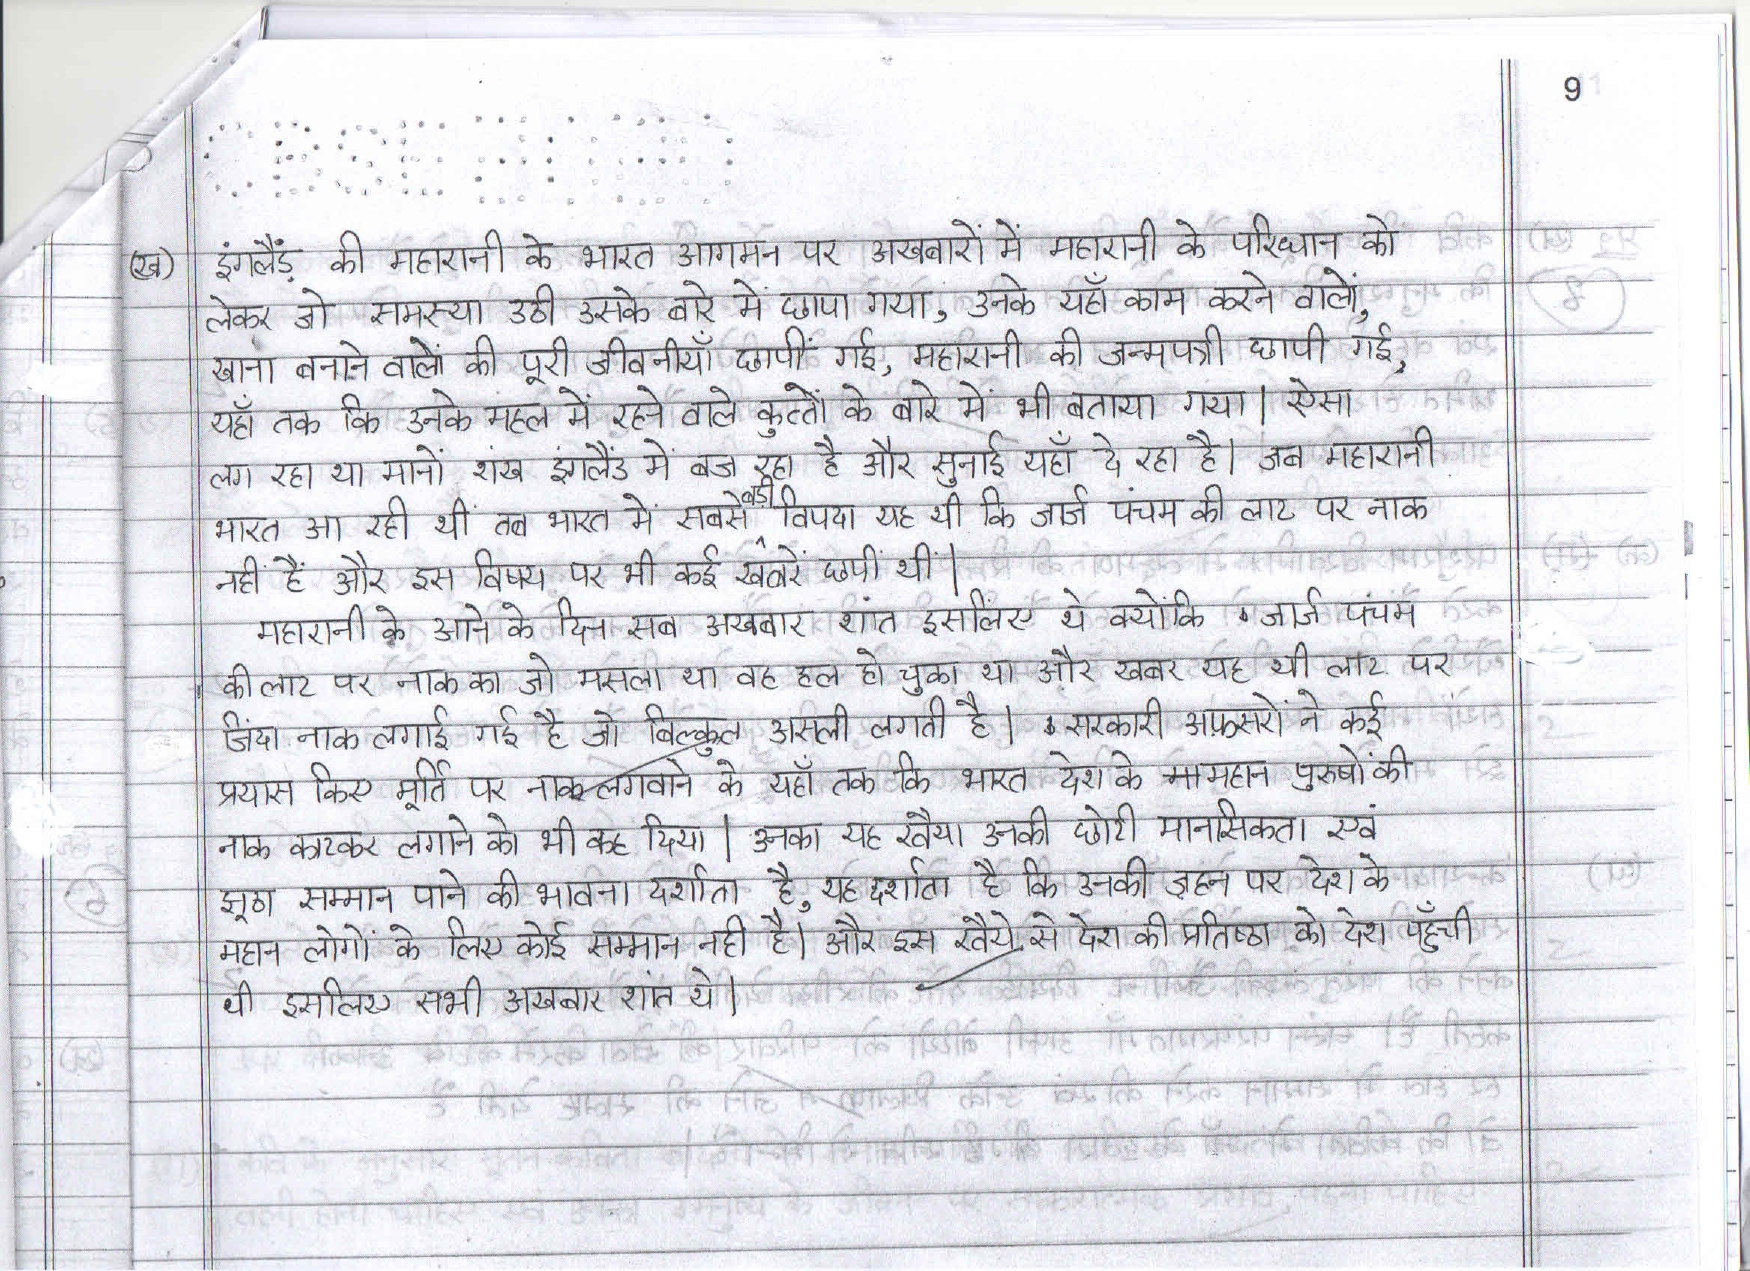 9
(ख) इंगलैंड़ की महारानी के भारत आगमन पर अखबारों में महारानी के परिधान को
लेकर जो समस्या उठी उसके बारे में छापा गया, उनके यहाँ काम करने वालों,
खाना बनाने वालों की पूरी जीवनीयाँ छापीं गई, महारानी की जन्मपत्री छापी गई,
यहाँ तक कि उनके महल में रहने वाले कुत्तों के बारे में भी बताया गया। ऐसा
लग रहा था मानों शंख इंगलैंड में बज रहा है और सुनाई यहाँ दे रहा है। जब महारानी
भारत आ रही थीं तब भारत में सबसे बड़ी विपदा यह थी कि जार्ज पंचम की लाट पर नाक
नहीं हैं और इस विषय पर भी कई खबरें छपीं थीं।
महारानी के आने के दिन सब अखबार शांत इसलिए थे क्योंकि जार्ज पंचम
की लाट पर नाक का जो मसला था वह हल हो चुका था और खबर यह थी लाट पर
जिंदा नाक लगाई गई है जो बिल्कुल असली लगती है। सरकारी अफ़सरों ने कई
प्रयास किए मूर्ति पर नाक लगवाने के यहाँ तक कि भारत देश के महान पुरुषों की
नाक काटकर लगाने को भी कह दिया। उनका यह रवैया उनकी छोटी मानसिकता एवं
झूठा सम्मान पाने की भावना दर्शाता है, यह दर्शाता है कि उनकी ज़हन पर देश के
महान लोगों के लिए कोई सम्मान नही है। और इस रवैये से देश की प्रतिष्ठा को देश पहुँची
थी इसलिए सभी अखबार शांत थे।